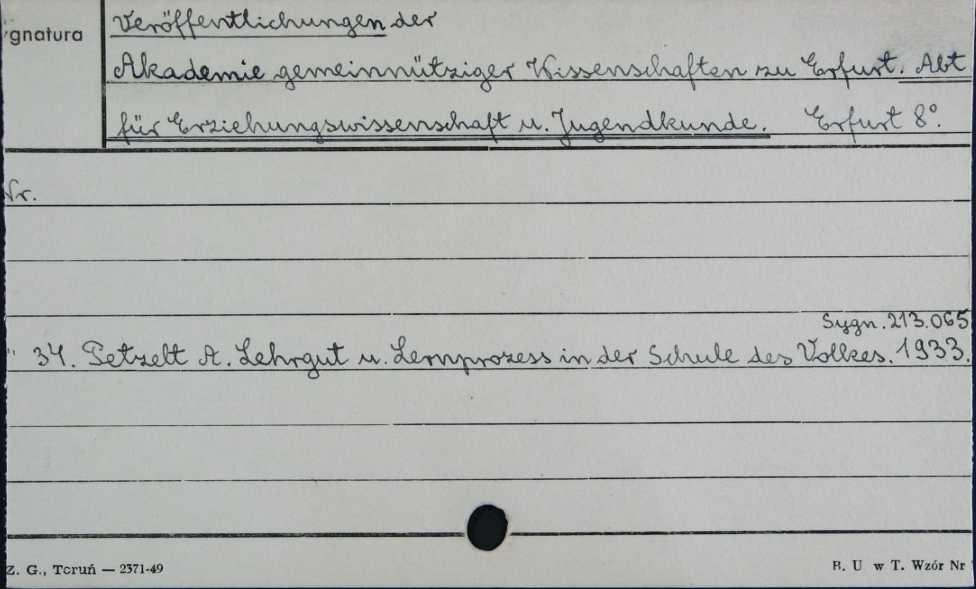 ygnatura
Veröffentlichungen der
Akademie gemeinnütziger Wissenschaften zu Erfurt. Abt
für Erziehungswissenschaft u. Jugendkunde. Erfurt 8°.
Nr.
Sygn. 213.065
" 34. Petzelt A. Lehrgut u. Lernprozess in der Schule des Volkes. 1933.
Z. G., Toruń — 2371-49
B. U w T. Wzór Nr